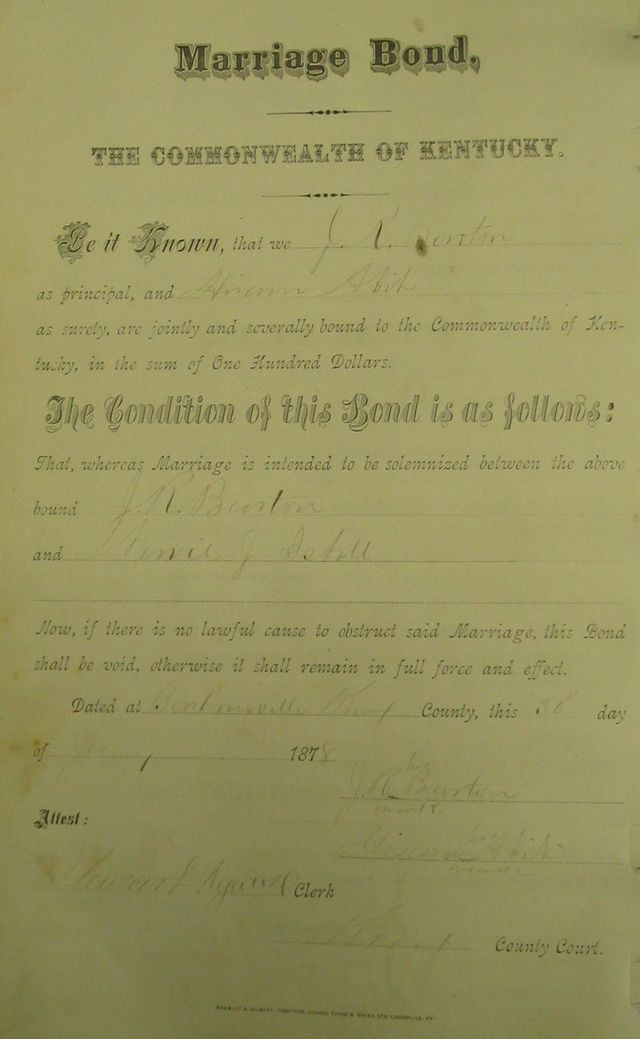 Marriage Bond,
THE COMMONWEALTH OF KENTUCKY.
Be it Known, that we J. R. Burton
as principal, and Hiram Abit
as surety, are jointly and severally bound to the Commonwealth of Ken-
tucky, in the sum of One Hundred Dollars.
The Condition of this Bond is as follows:
That, whereas Marriage is intended to be solemnized between the above
bound J. R. Burton
and J
Now, if there is no lawful cause to obstruct said Marriage, this Bond
shall be void, otherwise it shall remain in full force and effect.
Dated at Barbourville Knox County, this 28 day
of 1878
his
J. R. Burton
mark
Attest:
his
Hiram Abit
mark
Clerk
Knox County Court.